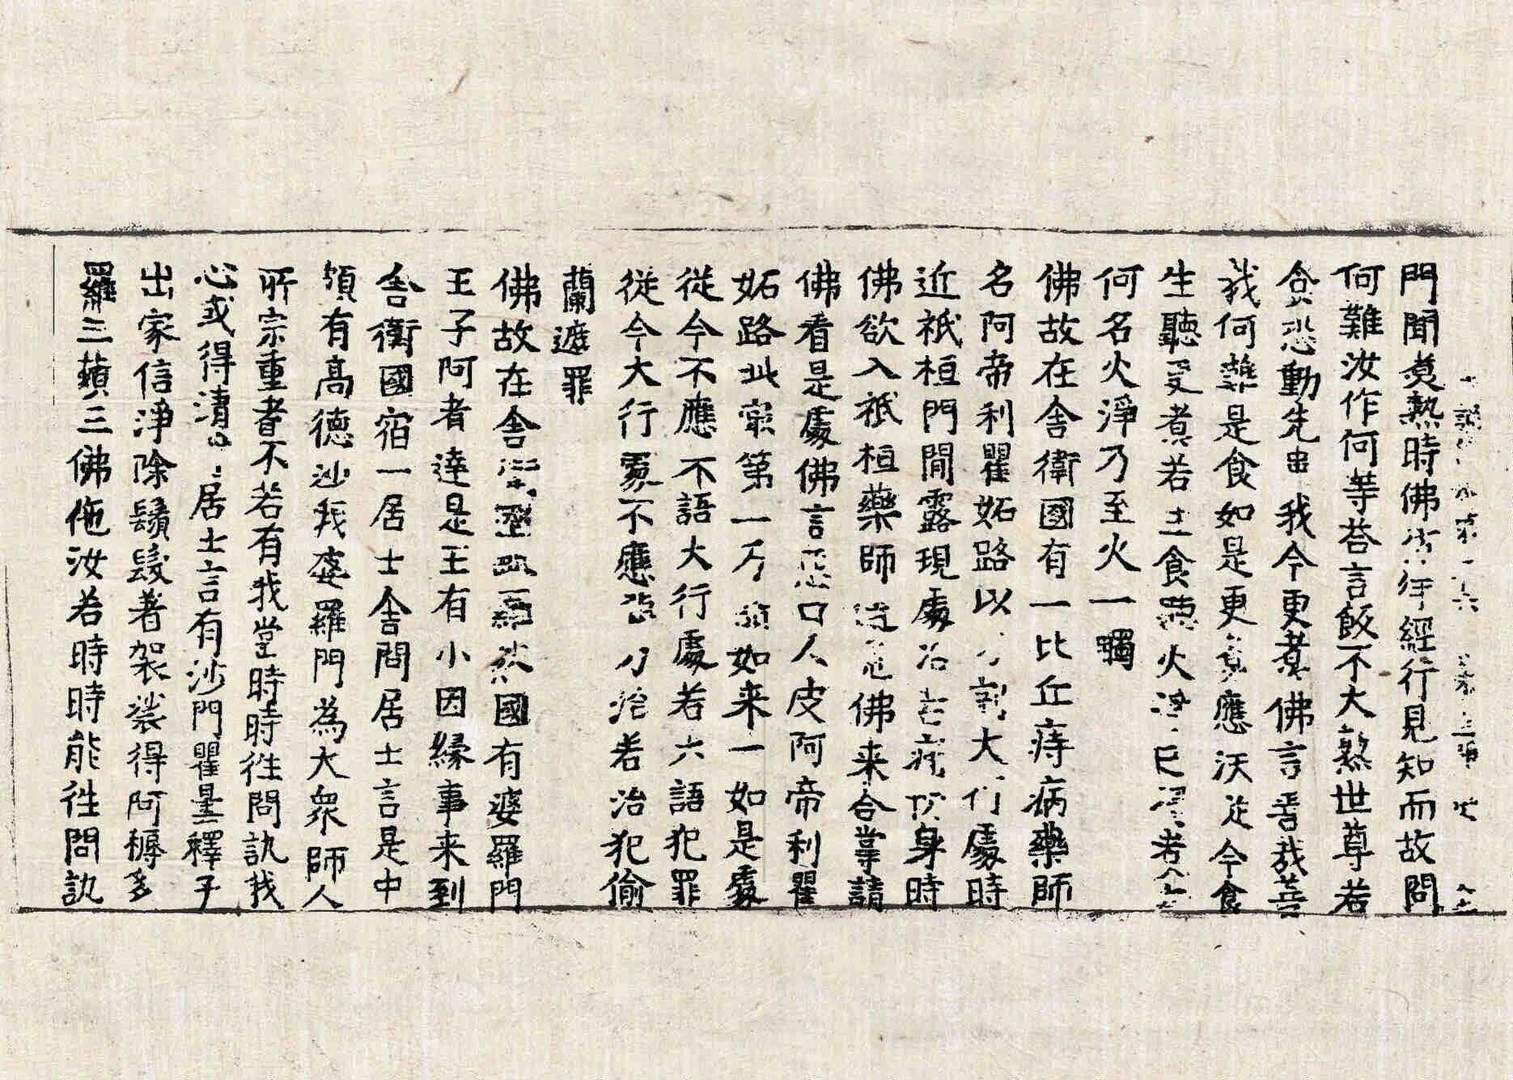 門聞煑熟時佛 經行見知而故問
何難汝作何等荅言飯不大熟世尊若
食恐動先 我今更煮佛言善哉善
我何 是食如是更煮應沃 今食
生聽受煮若生食 火淨已 煮
何名火淨乃至火一觸
佛故在舍衛國有一比丘痔病藥師
名阿帝利瞿妬路以刀 大行處時
近祇桓門間露現處治 病 身時
佛欲入祇桓藥師 見佛来合掌請
佛看是處佛言惡口人皮阿帝利瞿
妬路此㝡第一 如来一如是處
從今不應不語大行處若六語犯罪
從今大行處不應 刀治若治犯偷
蘭遮罪
佛故在舍 國有婆羅門
王子阿耆達是王有小因緣事来到
舎衛國宿一居士舎問居士言是中
頗有髙德沙 婆羅門為大衆師人
所宗重者不若有我當時時徃問訊我
心或得清 居士言有沙門瞿曇釋子
出家信淨除鬚髮著袈裟得阿耨多
羅三藐三佛佗汝若時時能徃問訊